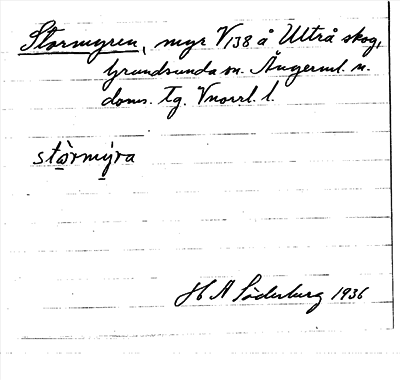 Stormyren, myr V138 å Ultrå skog,
Grundsunda sn. Ångerml. n.
doms. Tg. Vnorrl. l.
stòrmýra
H A Söderburg 1936